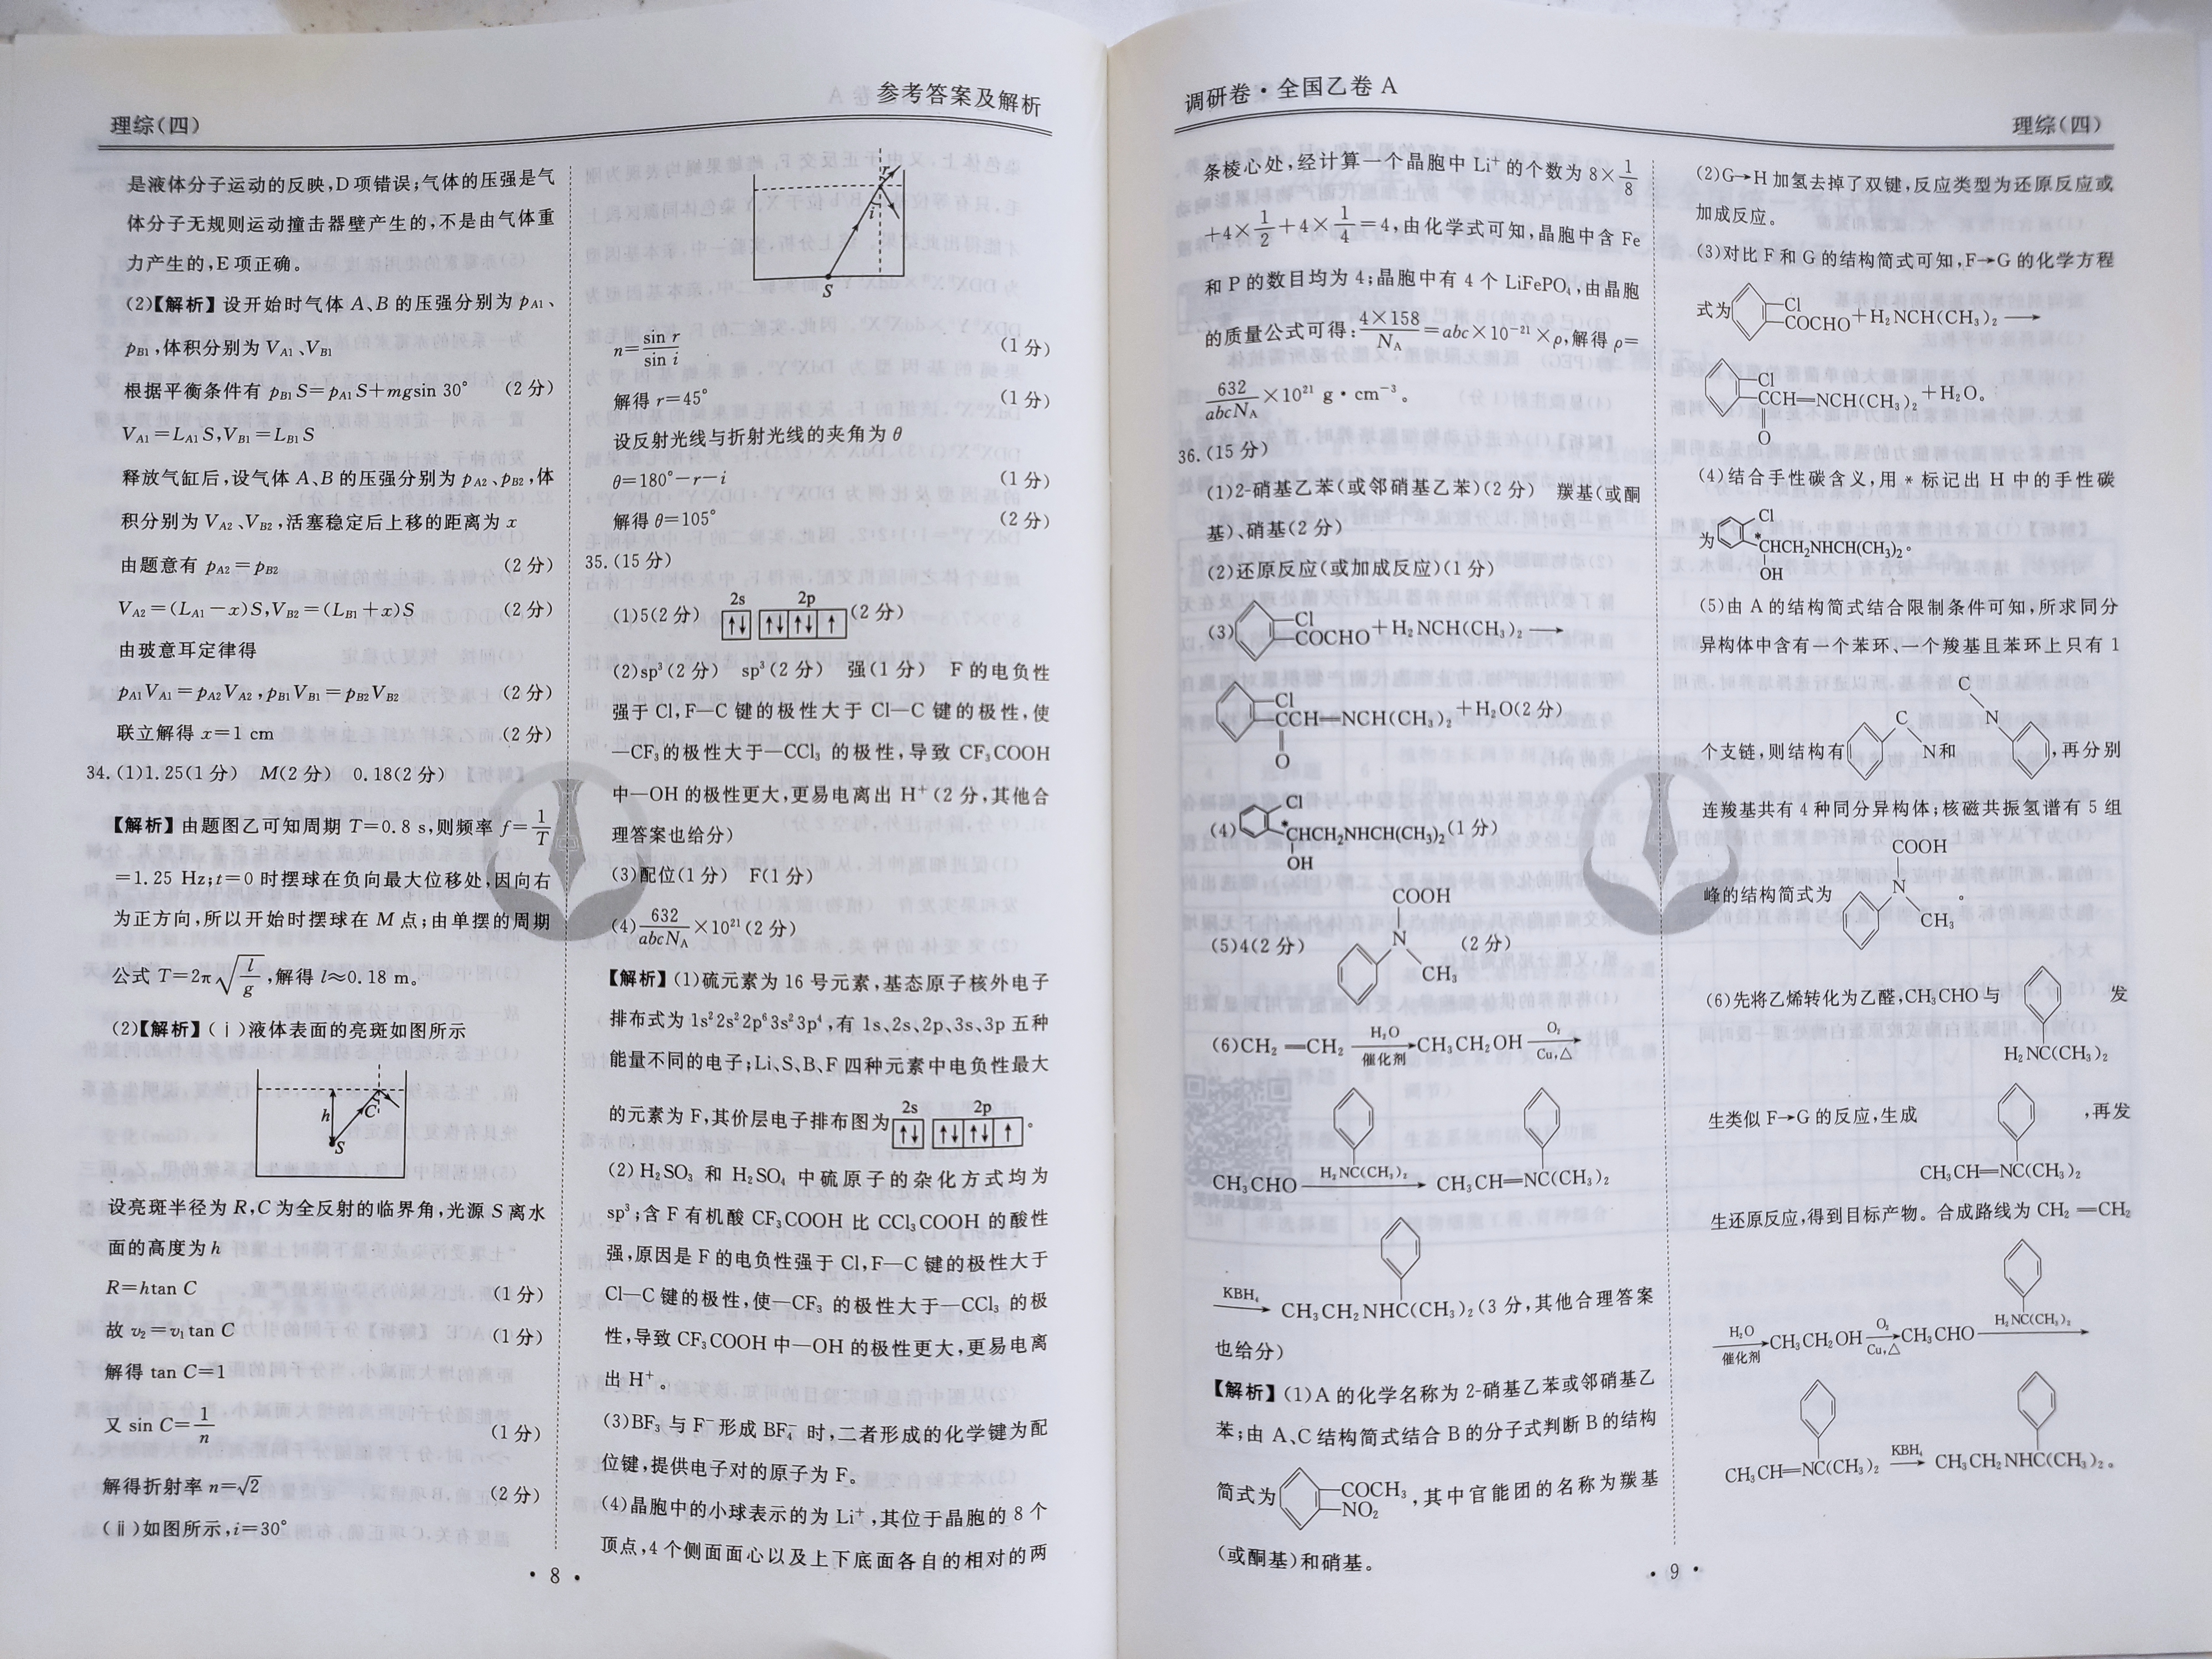 理综(四)
参考答案及解析
是液体分子运动的反映,D项错误;气体的压强是气
体分子无规则运动撞击器壁产生的,不是由气体重
力产生的,E项正确。
(2)【解析】设开始时气体A、B的压强分别为pA1、
pB1,体积分别为VA1、VB1
根据平衡条件有 pB1S=pA1S+mgsin 30° (2分)
VA1=LA1S,VB1=LB1S
释放气缸后,设气体A、B的压强分别为pA2、pB2,体
积分别为VA2、VB2,活塞稳定后上移的距离为x
由题意有 pA2=pB2 (2分)
VA2=(LA1-x)S,VB2=(LB1+x)S (2分)
由玻意耳定律得
pA1VA1=pA2VA2,pB1VB1=pB2VB2 (2分)
联立解得 x=1 cm (2分)
34.(1)1.25(1分) M(2分) 0.18(2分)
【解析】由题图乙可知周期T=0.8 s,则频率f=1/T
=1.25 Hz;t=0时摆球在负向最大位移处,因向右
为正方向,所以开始时摆球在M点;由单摆的周期
公式T=2π√(l/g),解得l≈0.18 m。
(2)【解析】(ⅰ)液体表面的亮斑如图所示
h
C
S
设亮斑半径为R,C为全反射的临界角,光源S离水
面的高度为h
R=htan C (1分)
故v2=v1tan C (1分)
解得tan C=1
又sin C=1/n (1分)
解得折射率n=√2 (2分)
(ⅱ)如图所示,i=30°
r
i
S
n=sin r/sin i (1分)
解得r=45° (1分)
设反射光线与折射光线的夹角为θ
θ=180°-r-i (1分)
解得θ=105° (2分)
35.(15分)
2s 2p
(1)5(2分) ↑↓ ↑↓ ↑↓ ↑ (2分)
(2)sp³(2分) sp³(2分) 强(1分) F的电负性
强于Cl,F—C键的极性大于Cl—C键的极性,使
—CF₃的极性大于—CCl₃的极性,导致CF₃COOH
中—OH的极性更大,更易电离出H⁺(2分,其他合
理答案也给分)
(3)配位(1分) F(1分)
(4)632/abcNA×10²¹(2分)
【解析】(1)硫元素为16号元素,基态原子核外电子
排布式为1s²2s²2p⁶3s²3p⁴,有1s、2s、2p、3s、3p五种
能量不同的电子;Li、S、B、F四种元素中电负性最大
2s 2p
的元素为F,其价层电子排布图为 ↑↓ ↑↓ ↑↓ ↑ 。
(2)H₂SO₃和H₂SO₄中硫原子的杂化方式均为
sp³;含F有机酸CF₃COOH比CCl₃COOH的酸性
强,原因是F的电负性强于Cl,F—C键的极性大于
Cl—C键的极性,使—CF₃的极性大于—CCl₃的极
性,导致CF₃COOH中—OH的极性更大,更易电离
出H⁺。
(3)BF₃与F⁻形成BF₄⁻时,二者形成的化学键为配
位键,提供电子对的原子为F。
(4)晶胞中的小球表示的为Li⁺,其位于晶胞的8个
顶点,4个侧面面心以及上下底面各自的相对的两
· 8 ·
调研卷·全国乙卷A
理综(四)
条棱心处,经计算一个晶胞中Li⁺的个数为8×1/8
+4×1/2+4×1/4=4,由化学式可知,晶胞中含Fe
和P的数目均为4;晶胞中有4个LiFePO₄,由晶胞
的质量公式可得:4×158/NA=abc×10⁻²¹×ρ,解得ρ=
632/abcNA×10²¹ g·cm⁻³。
36.(15分)
(1)2-硝基乙苯(或邻硝基乙苯)(2分) 羰基(或酮
基)、硝基(2分)
(2)还原反应(或加成反应)(1分)
Cl
(3) COCHO+H₂NCH(CH₃)₂ ⟶
Cl
CCH═NCH(CH₃)₂+H₂O(2分)
O
Cl
(4) *CHCH₂NHCH(CH₃)₂(1分)
OH
COOH
(5)4(2分) N (2分)
CH₃
(6)CH₂═CH₂ H₂O 催化剂 CH₃CH₂OH O₂ Cu,△
CH₃CHO H₂NC(CH₃)₂ CH₃CH═NC(CH₃)₂
KBH₄ CH₃CH₂NHC(CH₃)₂(3分,其他合理答案
也给分)
【解析】(1)A的化学名称为2-硝基乙苯或邻硝基乙
苯;由A、C结构简式结合B的分子式判断B的结构
简式为 COCH₃ NO₂ ,其中官能团的名称为羰基
(或酮基)和硝基。
(2)G→H加氢去掉了双键,反应类型为还原反应或
加成反应。
(3)对比F和G的结构简式可知,F→G的化学方程
Cl
式为 COCHO+H₂NCH(CH₃)₂ ⟶
Cl
CCH═NCH(CH₃)₂+H₂O。
O
(4)结合手性碳含义,用*标记出H中的手性碳
Cl
为 *CHCH₂NHCH(CH₃)₂。
OH
(5)由A的结构简式结合限制条件可知,所求同分
异构体中含有一个苯环、一个羧基且苯环上只有1
C C N
个支链,则结构有 N和 ,再分别
连羧基共有4种同分异构体;核磁共振氢谱有5组
COOH
峰的结构简式为 N 。
CH₃
(6)先将乙烯转化为乙醛,CH₃CHO与 发
H₂NC(CH₃)₂
生类似F→G的反应,生成 ,再发
CH₃CH═NC(CH₃)₂
生还原反应,得到目标产物。合成路线为CH₂═CH₂
H₂O 催化剂 CH₃CH₂OH O₂ Cu,△ CH₃CHO H₂NC(CH₃)₂
CH₃CH═NC(CH₃)₂ KBH₄ CH₃CH₂NHC(CH₃)₂。
· 9 ·